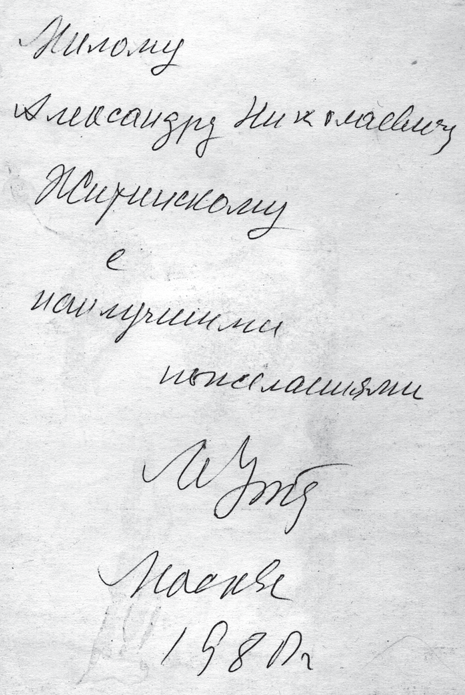 Милому
Александру Николаевичу
Житинскому
с
наилучшими
пожеланиями
Москва
1980г